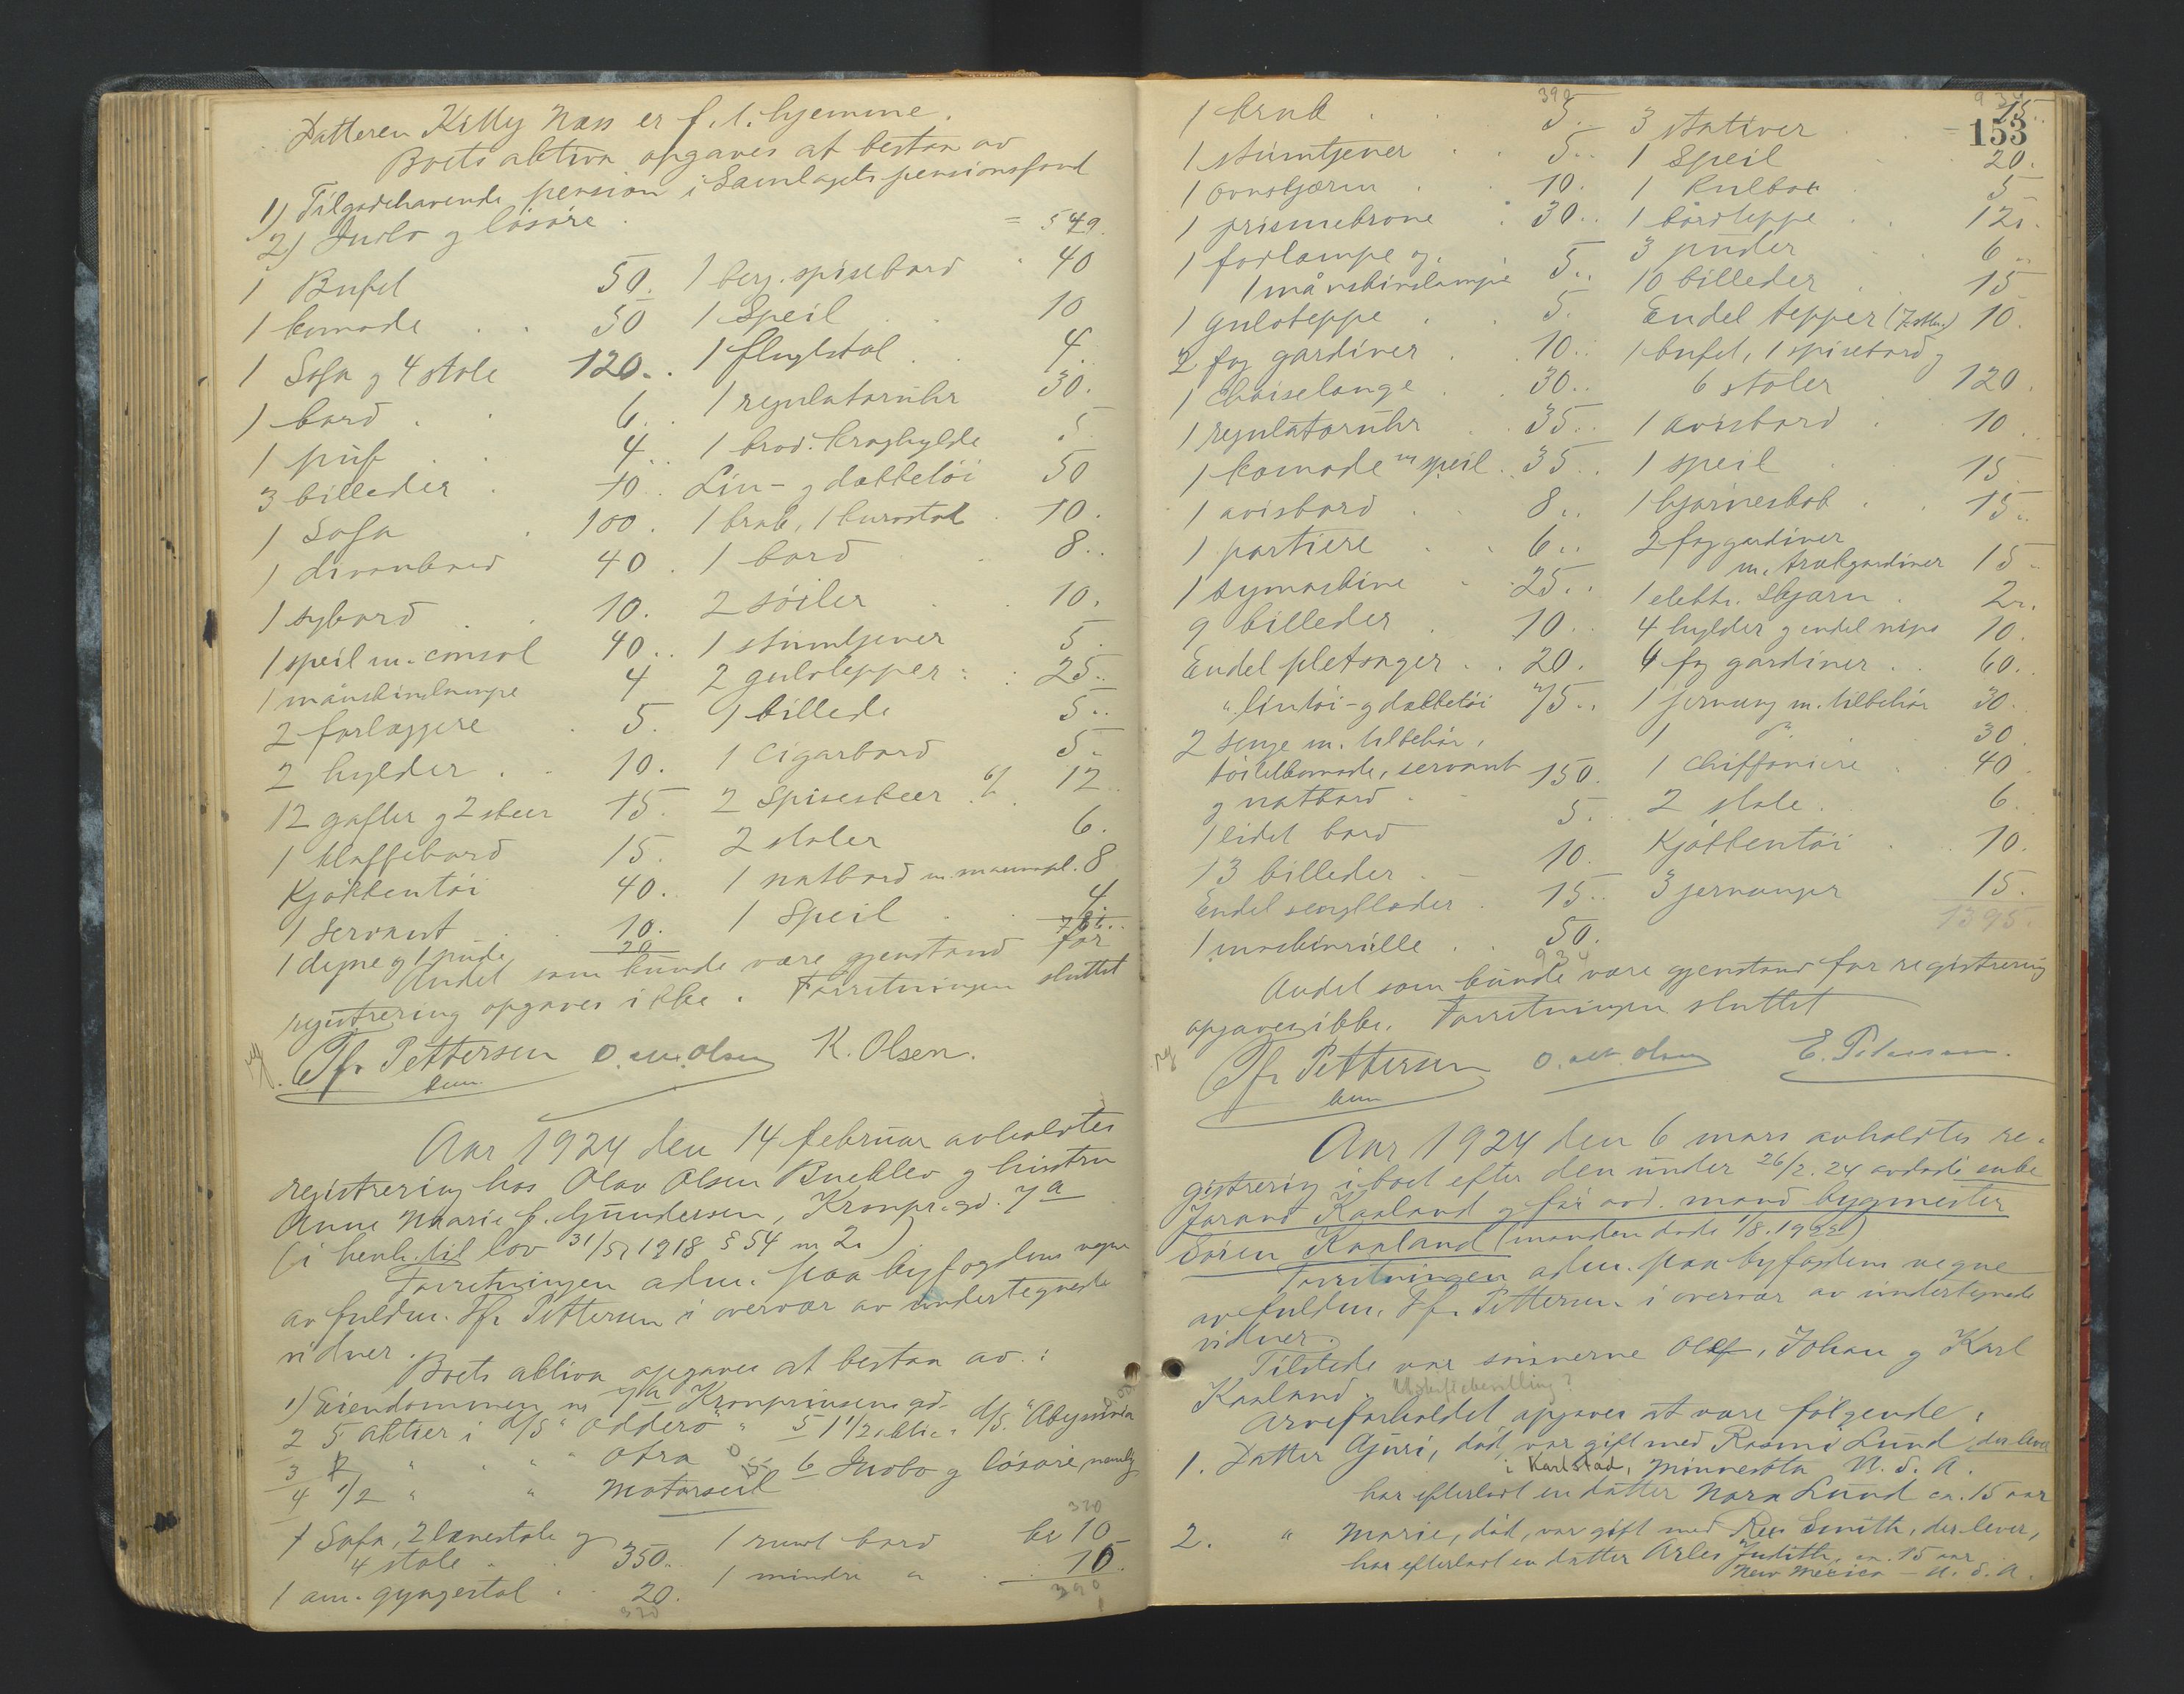 Datteren Kitty Næss er f. t. hjemme.
Boets aktiva opgaves at bestaa av
1) Tilgodehavende pension i Samlagets pensionsfond
2) Indbo og løsøre
1 Bufet 50.
1 komode 50
1 Sofa og 4 stole 120..
1 bord 6..
1 puf 4..
3 billeder 10.
1 Sofa 100.
1 divanbord 40.
1 sybord 10.
1 speil m. consol 40..
1 måneskinslampe 4
2 forlæggere 5.
2 hylder 10.
12 gafler og 2 skeer 15.
1 klaffebord 15.
Kjøkkentøi 40.
1 servant 10.
1 dyne og 1 pude 20
= 549.
1 berg. spisebord 40
1 Speil 10
1 flugtstol 4.
1 regulatoruhr 30.
1 brod. kraghylde 5
Lin- og dækketøi 50
1 krak, 1 kurvstol 10.
1 bord 8..
2 søiler 10.
1 stumtjener 5.
2 gulvtepper 25..
1 billede 5..
1 Cigarbord 5.
2 Spiseskeer 6/ 12..
2 stoler 6.
1 natbord m. marmorpl. 8
1 Speil 4.
Andet som kunde være gjenstand for
registrering opgaves ikke. Forretningen sluttet
Tfr Pettersen O. M. Olsen K. Olsen.
fum.
Aar 1924 den 14 februar avholdtes
registrering hos Olav Olsen Bueklev og hustru
Anne Marie f. Gundersen, Kronpr.gd. 7a
(i henh. til lov 31/5 1918 § 54 nr 2.)
Forretningen adm. paa byfogdens vegne
av fuldm. Tfr Pettersen i overvær av undertegnede
vidner.
Boets aktiva opgaves at bestaa av:
1) Eiendommen nr 7a Kronprinsens gd.
2 5 aktier i d/s "Odderø" 5 1 1/2 aktie i d/s. "Abyssinia
3 " " " Otra 6 Indbo og løsøre, nemlig
4 1/2 " " Motorseil
1 Sofa, 2 lænestole og
4 stole 350..
1 am. gyngestol 20.
320
320
1 rundt bord kr 10
1 mindre " 10.
390
390
1 krak 5..
1 stumtjener 5..
1 ovnskjærm 10.
1 prismekrone 30..
1 fodlampe og
1 måneskinslampe 5..
1 gulvteppe 5.
2 fag gardiner 10..
1 Chaiselonge 30..
1 regulatoruhr 35..
1 komode m speil 35..
1 avisbord 8..
1 portiere 6..
1 symaskine 25..
9 billeder 10..
Endel pletsager 20.
" lintøi- og dækketøi 75..
2 senge m. tilbehør,
toiletkomode, servant
og natbord 150.
1 lidet bord 5.
13 billeder 10.
Endel sengklæder 15..
1 maskinrulle 50.
934
153
3 stativer 15..
1 Speil 20.
1 Kulbox 5
1 bordteppe 12..
3 puder 6..
10 billeder 15
Endel tepper (7 stkr.) 10.
1 bufet, 1 spisebord og
6 stoler 120.
1 avisbord 10..
1 speil 15
1 hjørneskab 15..
2 fag gardiner
m. trækgardiner 15
1 elektr. Skjærm 2..
4 hylder og endel nips 10.
4 fag gardiner 60.
1 jernseng m. tilbehør 30.
1 " 30
1 Chiffoniere 40
2 stole 6.
Kjøkkentøi 10.
3 jernsenger 15.
1395.
Andet som kunde være gjenstand for registrering
opgaves ikke. Forretningen sluttet
Tfr Pettersen O. M. Olsen E. Petersen.
fum
Aar 1924 den 6 mars avholdtes re-
gistrering i boet efter den under 26/2. 24 avdøde enke
Jorand Kaaland og før avd. mand bygmester
Søren Kaaland (manden døde 1/8. 1922)
Forretningen adm. paa byfogdens vegne
av fuldm. Tfr. Pettersen i overvær av undertegnede
vidner.
Tilstede var sønnerne Olaf, Johan og Karl
Kaaland. Uskiftebevilling?
Arveforholdet opgaves at være følgende:
1. Datter Gjuri, død, var gift med Rasmi Lund der lever
i Karlstad, Minnesota U. S. A.
har efterladt en datter Nora Lund ca. 15 aar
2. " Marie, død, var gift med Rees Smith, der lever,
har efterladt en datter Arles Judith, ca. 15 aar
New Mexico - U. S. A.